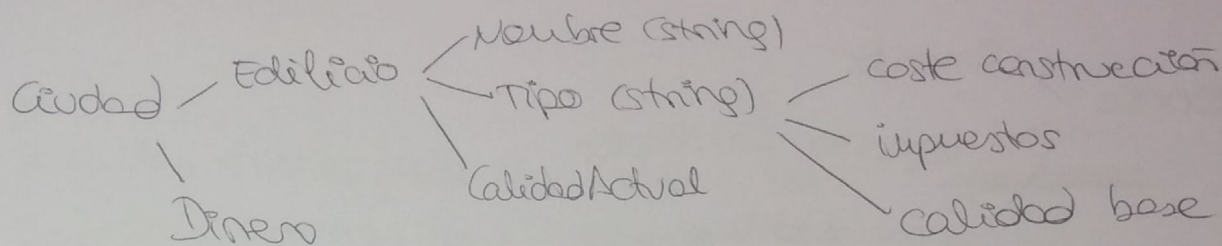 Ciudad
Edificio
Dinero
Nombre (string)
Tipo (string)
Calidad Actual
coste construcción
impuestos
calidad base